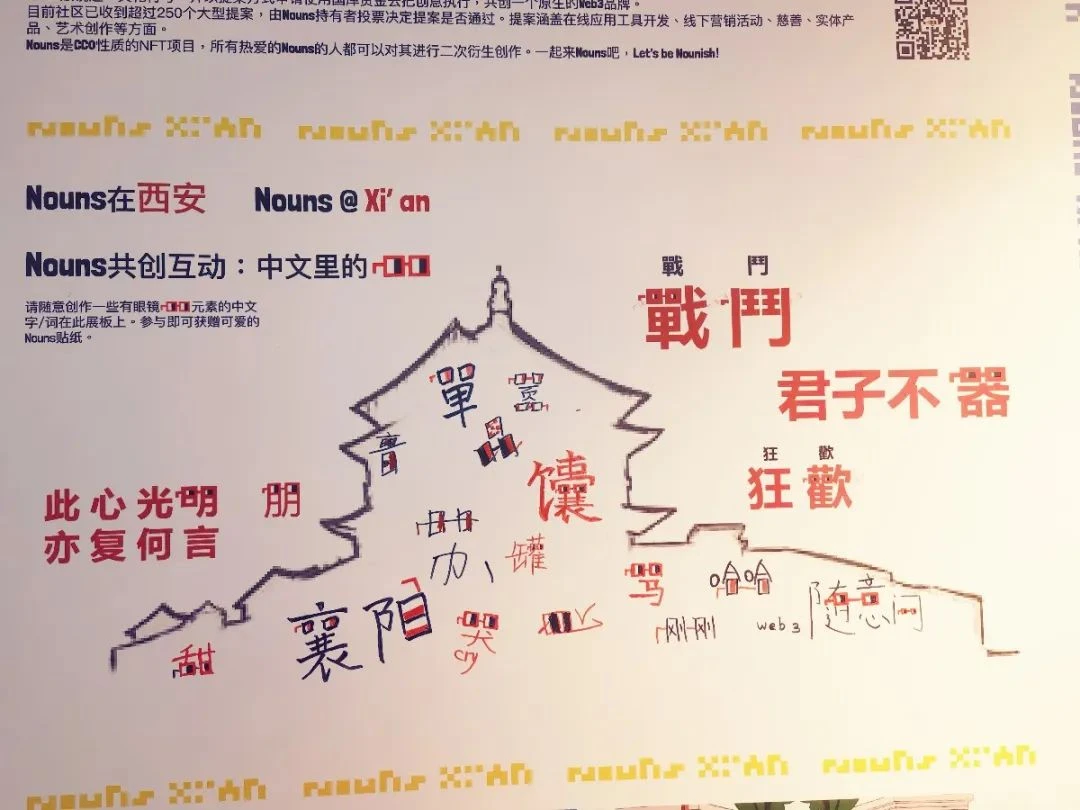 目前社区已收到超过250个大型提案，由Nouns持有者投票决定提案是否通过。提案涵盖在线应用工具开发、线下营销活动、慈善、实体产
品、艺术创作等方面。
Nouns是CC0性质的NFT项目，所有热爱的Nouns的人都可以对其进行二次衍生创作。一起来Nouns吧，Let's be Nounish!
Nouns XI'AN Nouns XI'AN Nouns XI'AN Nouns XI'AN
Nouns在西安 Nouns @ Xi' an
Nouns共创互动：中文里的
请随意创作一些有眼镜元素的中文
字/词在此展板上。参与即可获赠可爱的
Nouns贴纸。
戰 鬥
戰 鬥
君子不器
狂 歡
狂 歡
單
饢
此心光明 朋
亦复何言
罐
骂
哈哈
襄阳
哭
cry
刚刚
web3
随意问
甜
Nouns XI'AN Nouns XI'AN Nouns XI'AN Nouns XI'AN